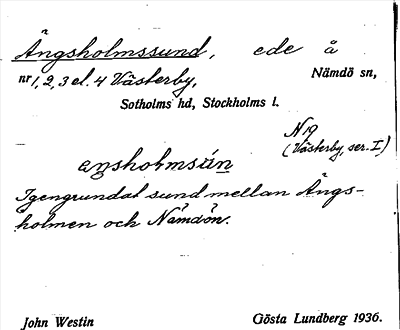 Ängsholmssund, ede å
nr 1, 2, 3 el. 4 Västerby, Nämdö sn,
Sotholms hd, Stockholms l.
N 19
(Västerby, ser. I)
aŋsholmsún
Igengrundat sund mellan Ängs-
holmen och Nämdön.
John Westin Gösta Lundberg 1936.